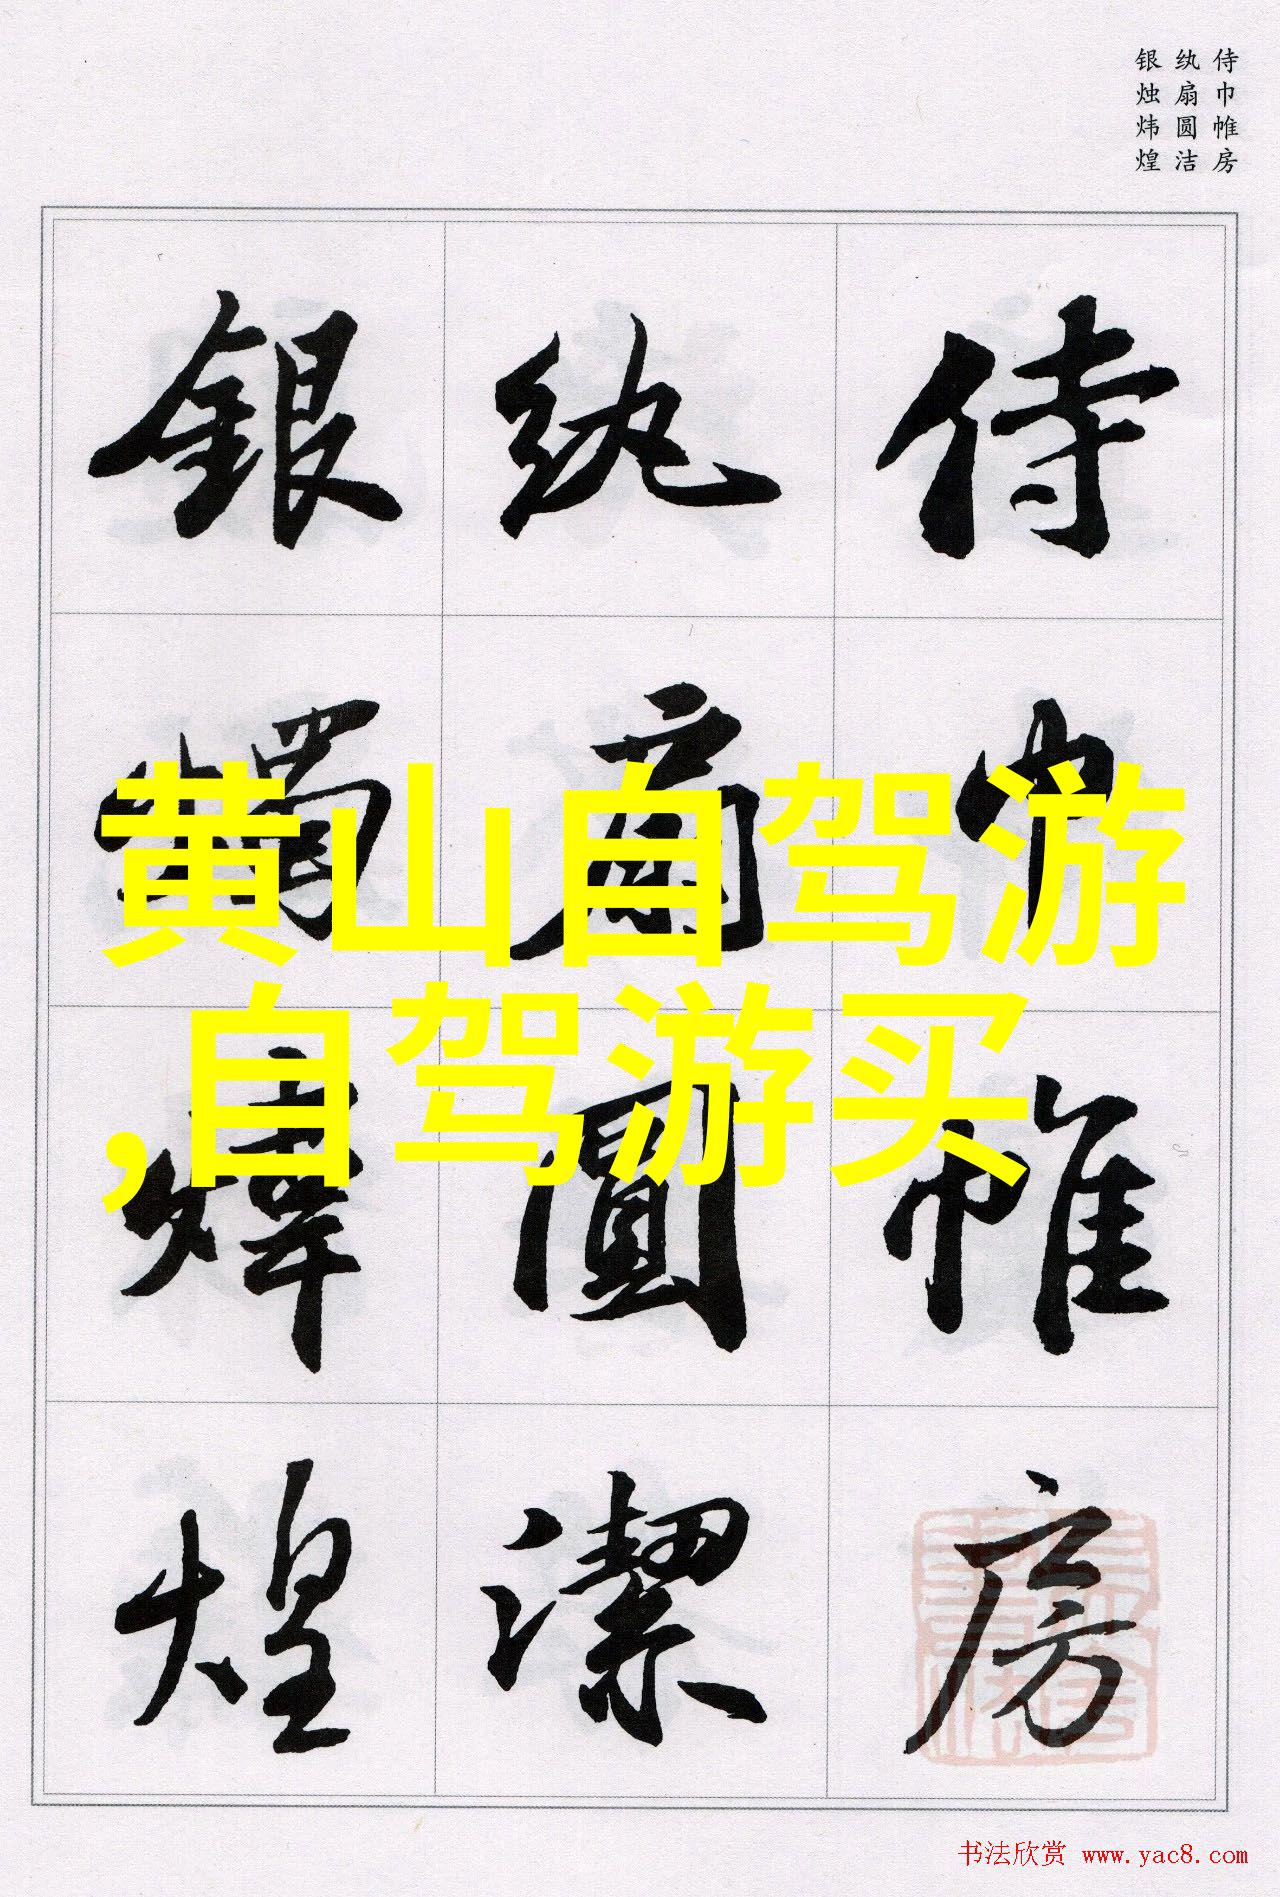 侍巾帷房
纨扇圆洁
银烛炜煌
侍巾帷房
纨扇圓潔
銀燭煒煌
黄山自驾游
,自驾游买
书法欣赏 www.yac8.com